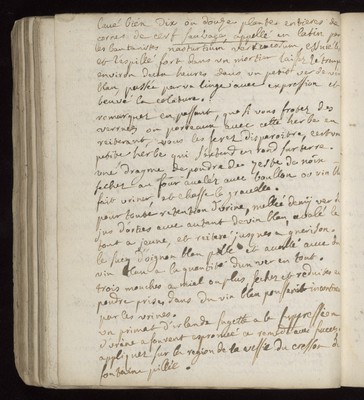 lavé bien dix ou douze plantes entieres de
corne de cerf sauvage appellé en latin par
les bautanistes nasturtium verrucarum,
et l'espillé fort dans un mortier laissé le tremper
environ deux heures dans un petit verre de vin
blan, passés par un linge avec expression et
beuvé la colature.
remarqués en passant, que si vous frotés des
verrues ou porreaux avec cette herbe en
reiterant, vous les ferés disparoitre, cest une
petite herbe qui s'étend en rond sur terre.
une dragme de poudre de zeste de noix
seches au four avalée avec boullon ou vin blan
fait uriner, et chasse la gravelle.
pour toute retention d'urine, mellés demy ver de
jus d'orties avec autant de vin blan, avalé le
tout a jeune, et reiteré jusques a guerison.
le sucq d'oignon blan pillé et avallé avec du
vin blan a la quantité d'un ver en tout.
trois mouches a miel ou plus sechés et reduites en
poudre prises dans du vin blan poussent incontinent
par les urines.
un primat d'irlande sujette a la suppression
d'urine a souvent esprouvé ce remede avec succez
appliquer sur la region de la vessie du cresson de
fontaine pillé.